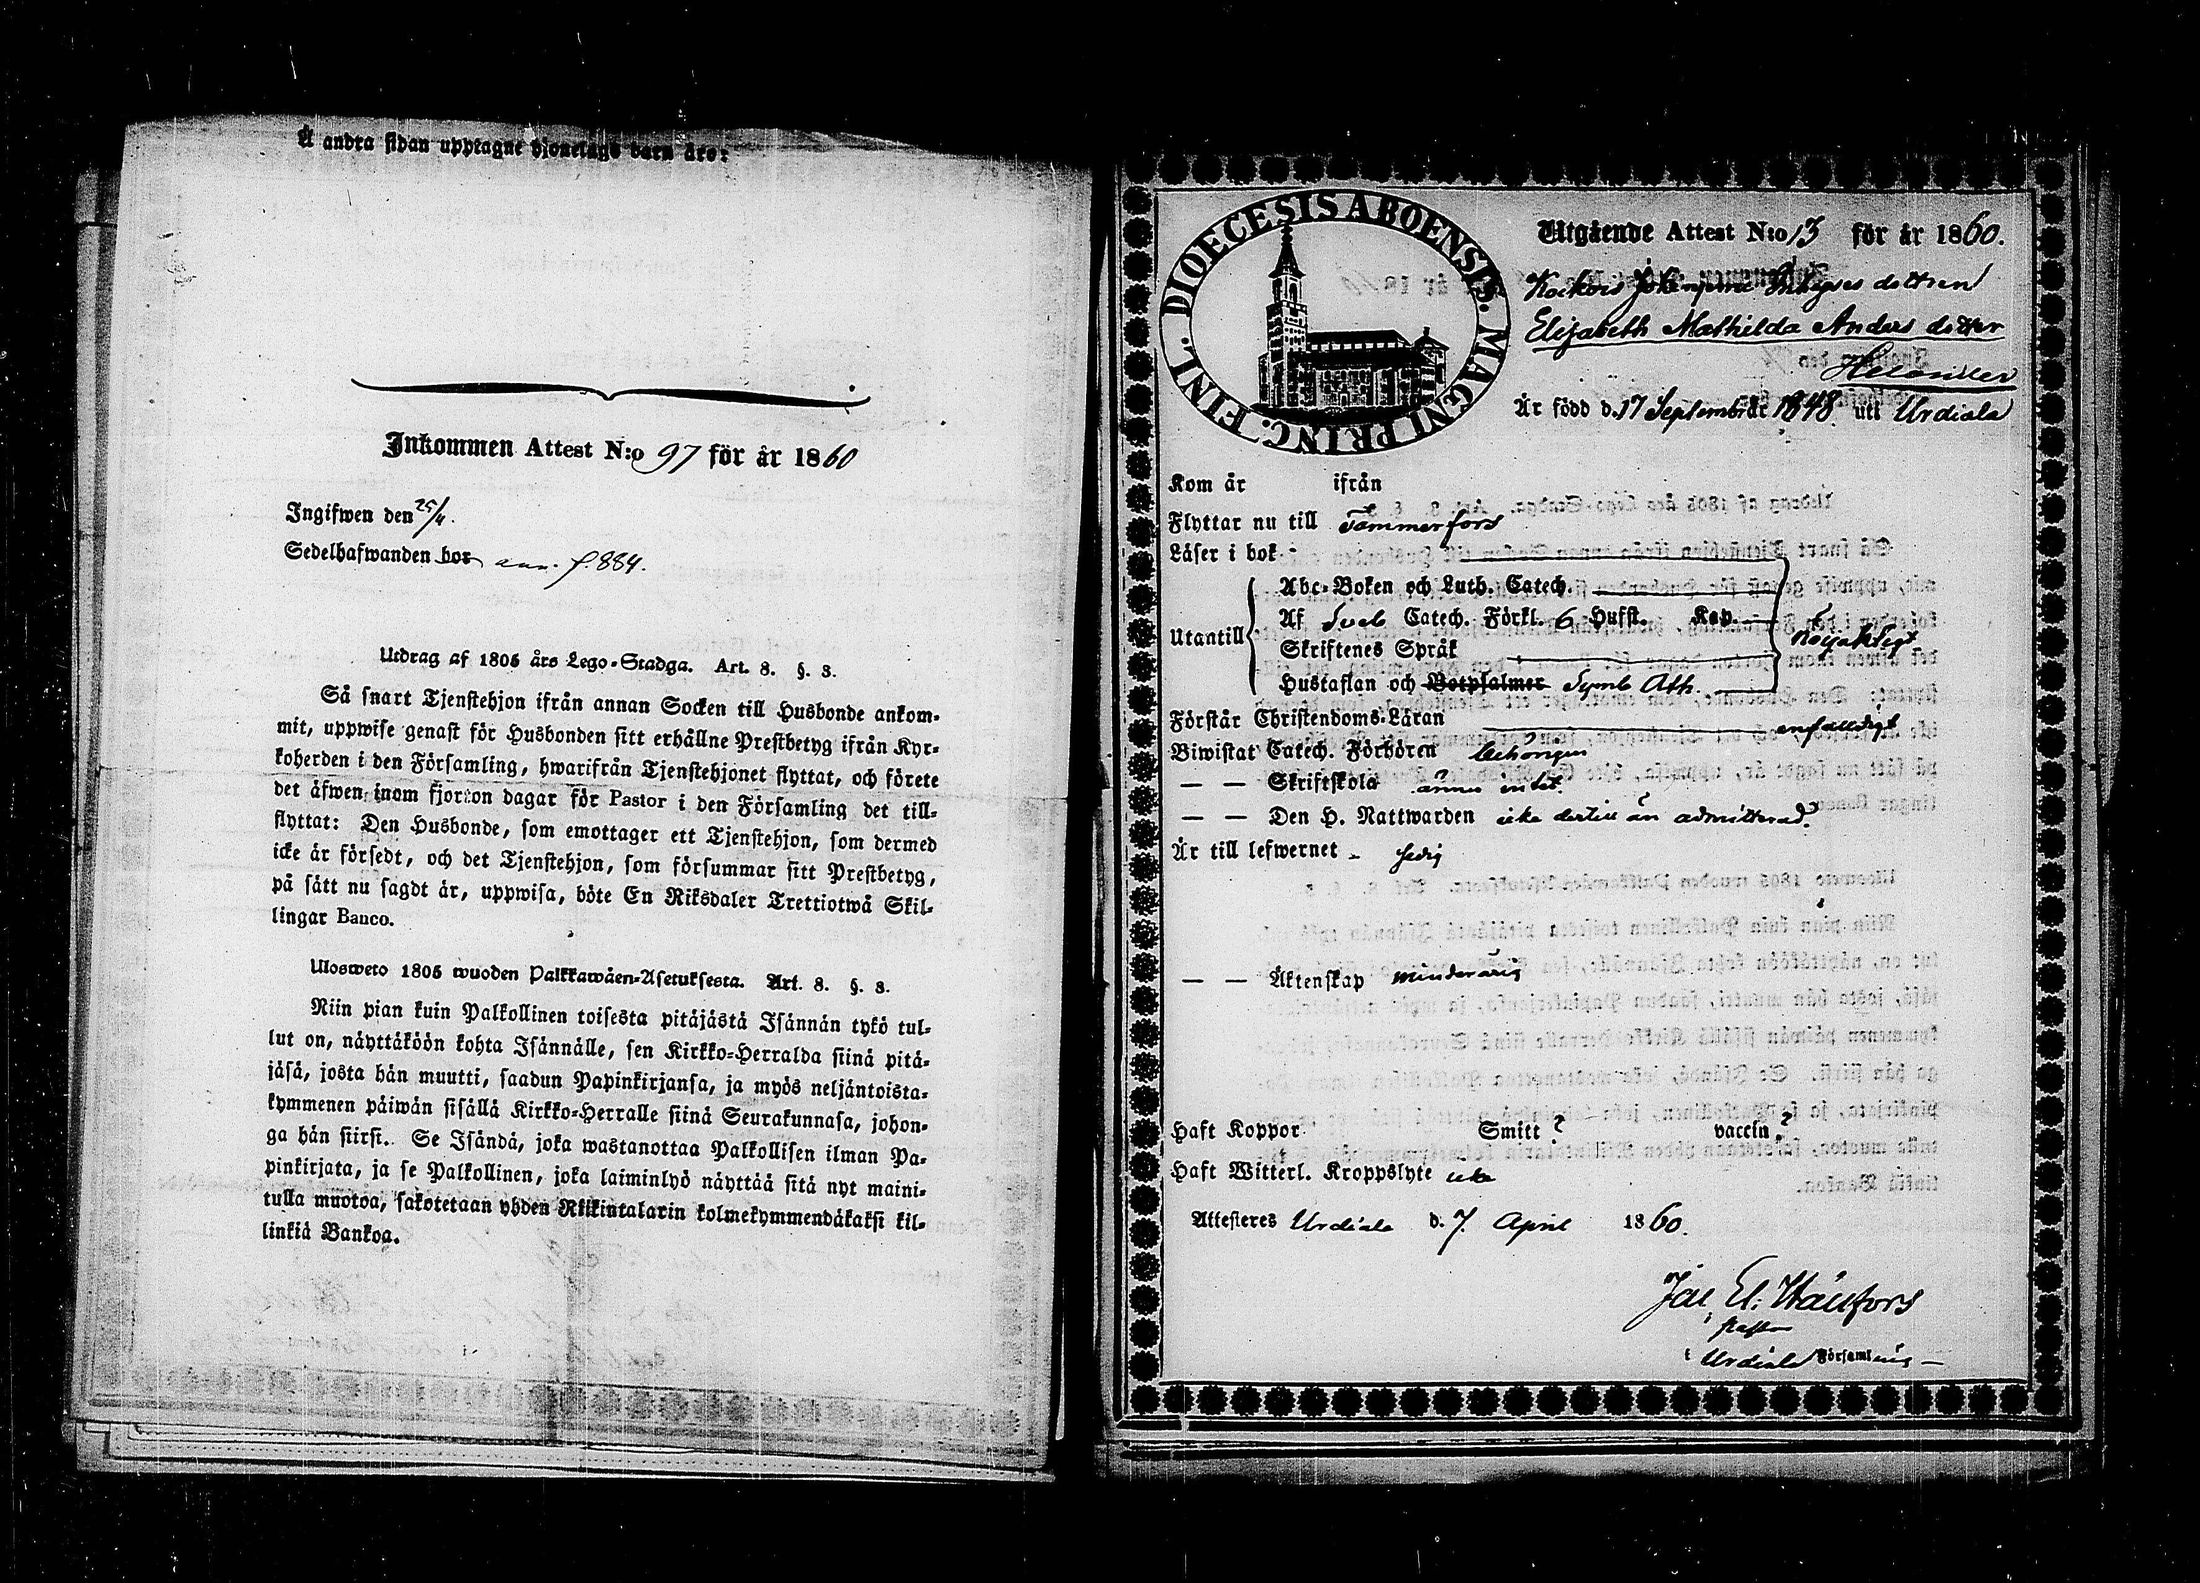 Å andra sidan upptagne hjonelags barn äro:
Inkommen Attest N:o 97 för år 1860
Ingifwen den 25/4.
Sedelhafwanden bor ann. f. 884.
Utdrag af 1805 års Lego-Stadga. Art. 8. §. 3.
Så snart Tjenstehjon ifrån annan Socken till Husbonde ankom-
mit, uppwise genast för Husbonden sitt erhållne Prestbetyg ifrån Kyr-
koherden i den Församling, hwarifrån Tjenstehjonet flyttat, och förete
det äfwen inom fjorton dagar för Pastor i den Församling det till-
flyttat: Den Husbonde, som emottager ett Tjenstehjon, som dermed
icke är försedt, och det Tjenstehjon, som försummar sitt Prestbetyg,
på sätt nu sagdt är, uppwisa, böte En Riksdaler Trettiotwå Skil-
lingar Banco.
Ulosweto 1805 wuoden Palkkawäen-Asetuksesta. Art. 8. §. 3.
Niin pian kuin Palkollinen toisesta pitäjästä Isännän tykö tul-
lut on, näyttäköön kohta Isännälle, sen Kirkko-Herralda siinä pitä-
jäsä, josta hän muutti, saadun Papinkirjansa, ja myös neljäntoista-
kymmenen päiwän sisällä Kirkko-Herralle siinä Seurakunnasa, johon-
ga hän siirsi. Se Isändä, joka wastanottaa Palkollisen ilman Pa-
pinkirjata, ja se Palkollinen, joka laiminlyö näyttää sitä nyt maini-
tulla muotoa, sakotetaan yhden Riikintalarin kolmekymmendäkaksi kil-
linkiä Bankoa.
DIOECESIS ABOENSIS. MAGNI PRINC. FINL.
Utgående Attest N:o 13 för år 1860.
dottren
Elisabeth Mathilda Anders dotter
Helander
Är född d. 17 September år 1848. uti Urdiala
Kom år ifrån
Flyttar nu till Tammerfors
Läser i bok
Utantill
Abc-Boken och Luth. Catech.
Af Sveb Catech. Förkl. 6 Hufst. Kap.
Skriftenes Språk
Hustaflan och Botpsalmer Symb Ath.
nöjaktigt
Förstår Christendoms-Läran enfaldigt
Biwistat Catech. Förhören behörigen
— — Skriftskola ännu intet.
— — Den H. Nattwarden icke dertill än admitterad.
Är till lefwernet - sedig
— — Äktenskap minderårig
Haft Koppor Smitt ? vaccin ?
Haft Witterl. Kroppslyte icke
Attesteres Urdiala d. 7. April 1860.
i Urdiala Församling